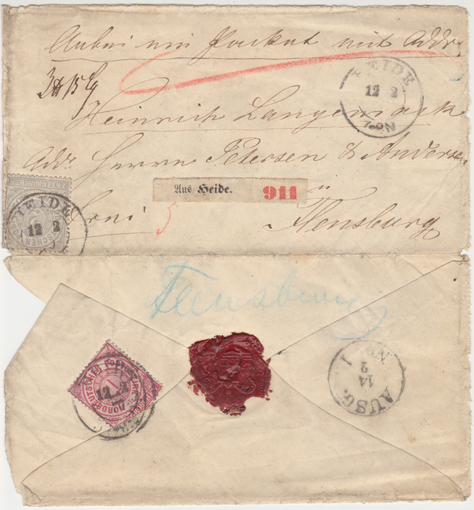 Anbei ein Packet mit Adr.
3 ℔ 15 Lg
Heinrich Langemack
Adr Herrn Petersen & Anderse
Aus Heide. 911
Flensburg
HEIDE
12 2
7-8 N
HEIDE
12 2
Flensburg
12
AUSG. N 1
14
2